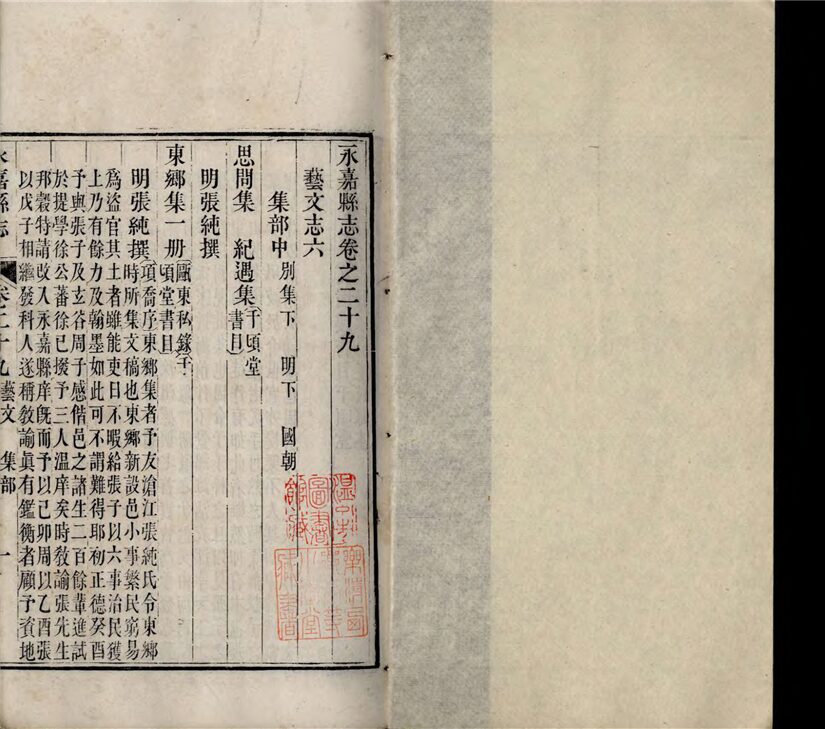 永嘉縣志卷之二十九
藝文志六
集部中 別集下 明下 國朝
思問集 紀遇集 千頃堂
書目
明張純撰
東鄉集一册 甌東私錄 千
頃堂書目
明張純撰 項喬序東鄉集者予友滄江張純氏令東鄉
時所集文稿也東鄉新設邑小事繁民窮易
爲盜官其土者雖能吏日不暇給張子以六事治民獲
上乃有餘力及翰墨如此可不謂難得耶初正德癸酉
予與張子及玄谷周子感偕邑之諸生二百餘輩進試
於提學徐公蕃徐已掇予三人溫庠矣時敎諭張先生
邦穀特請改入永嘉縣庠旣而予以己卯周以乙酉張
以戊子相繼發科人遂稱敎諭眞有鑑衡者顧予資地
永嘉縣志 卷二十九 藝文 集部 一